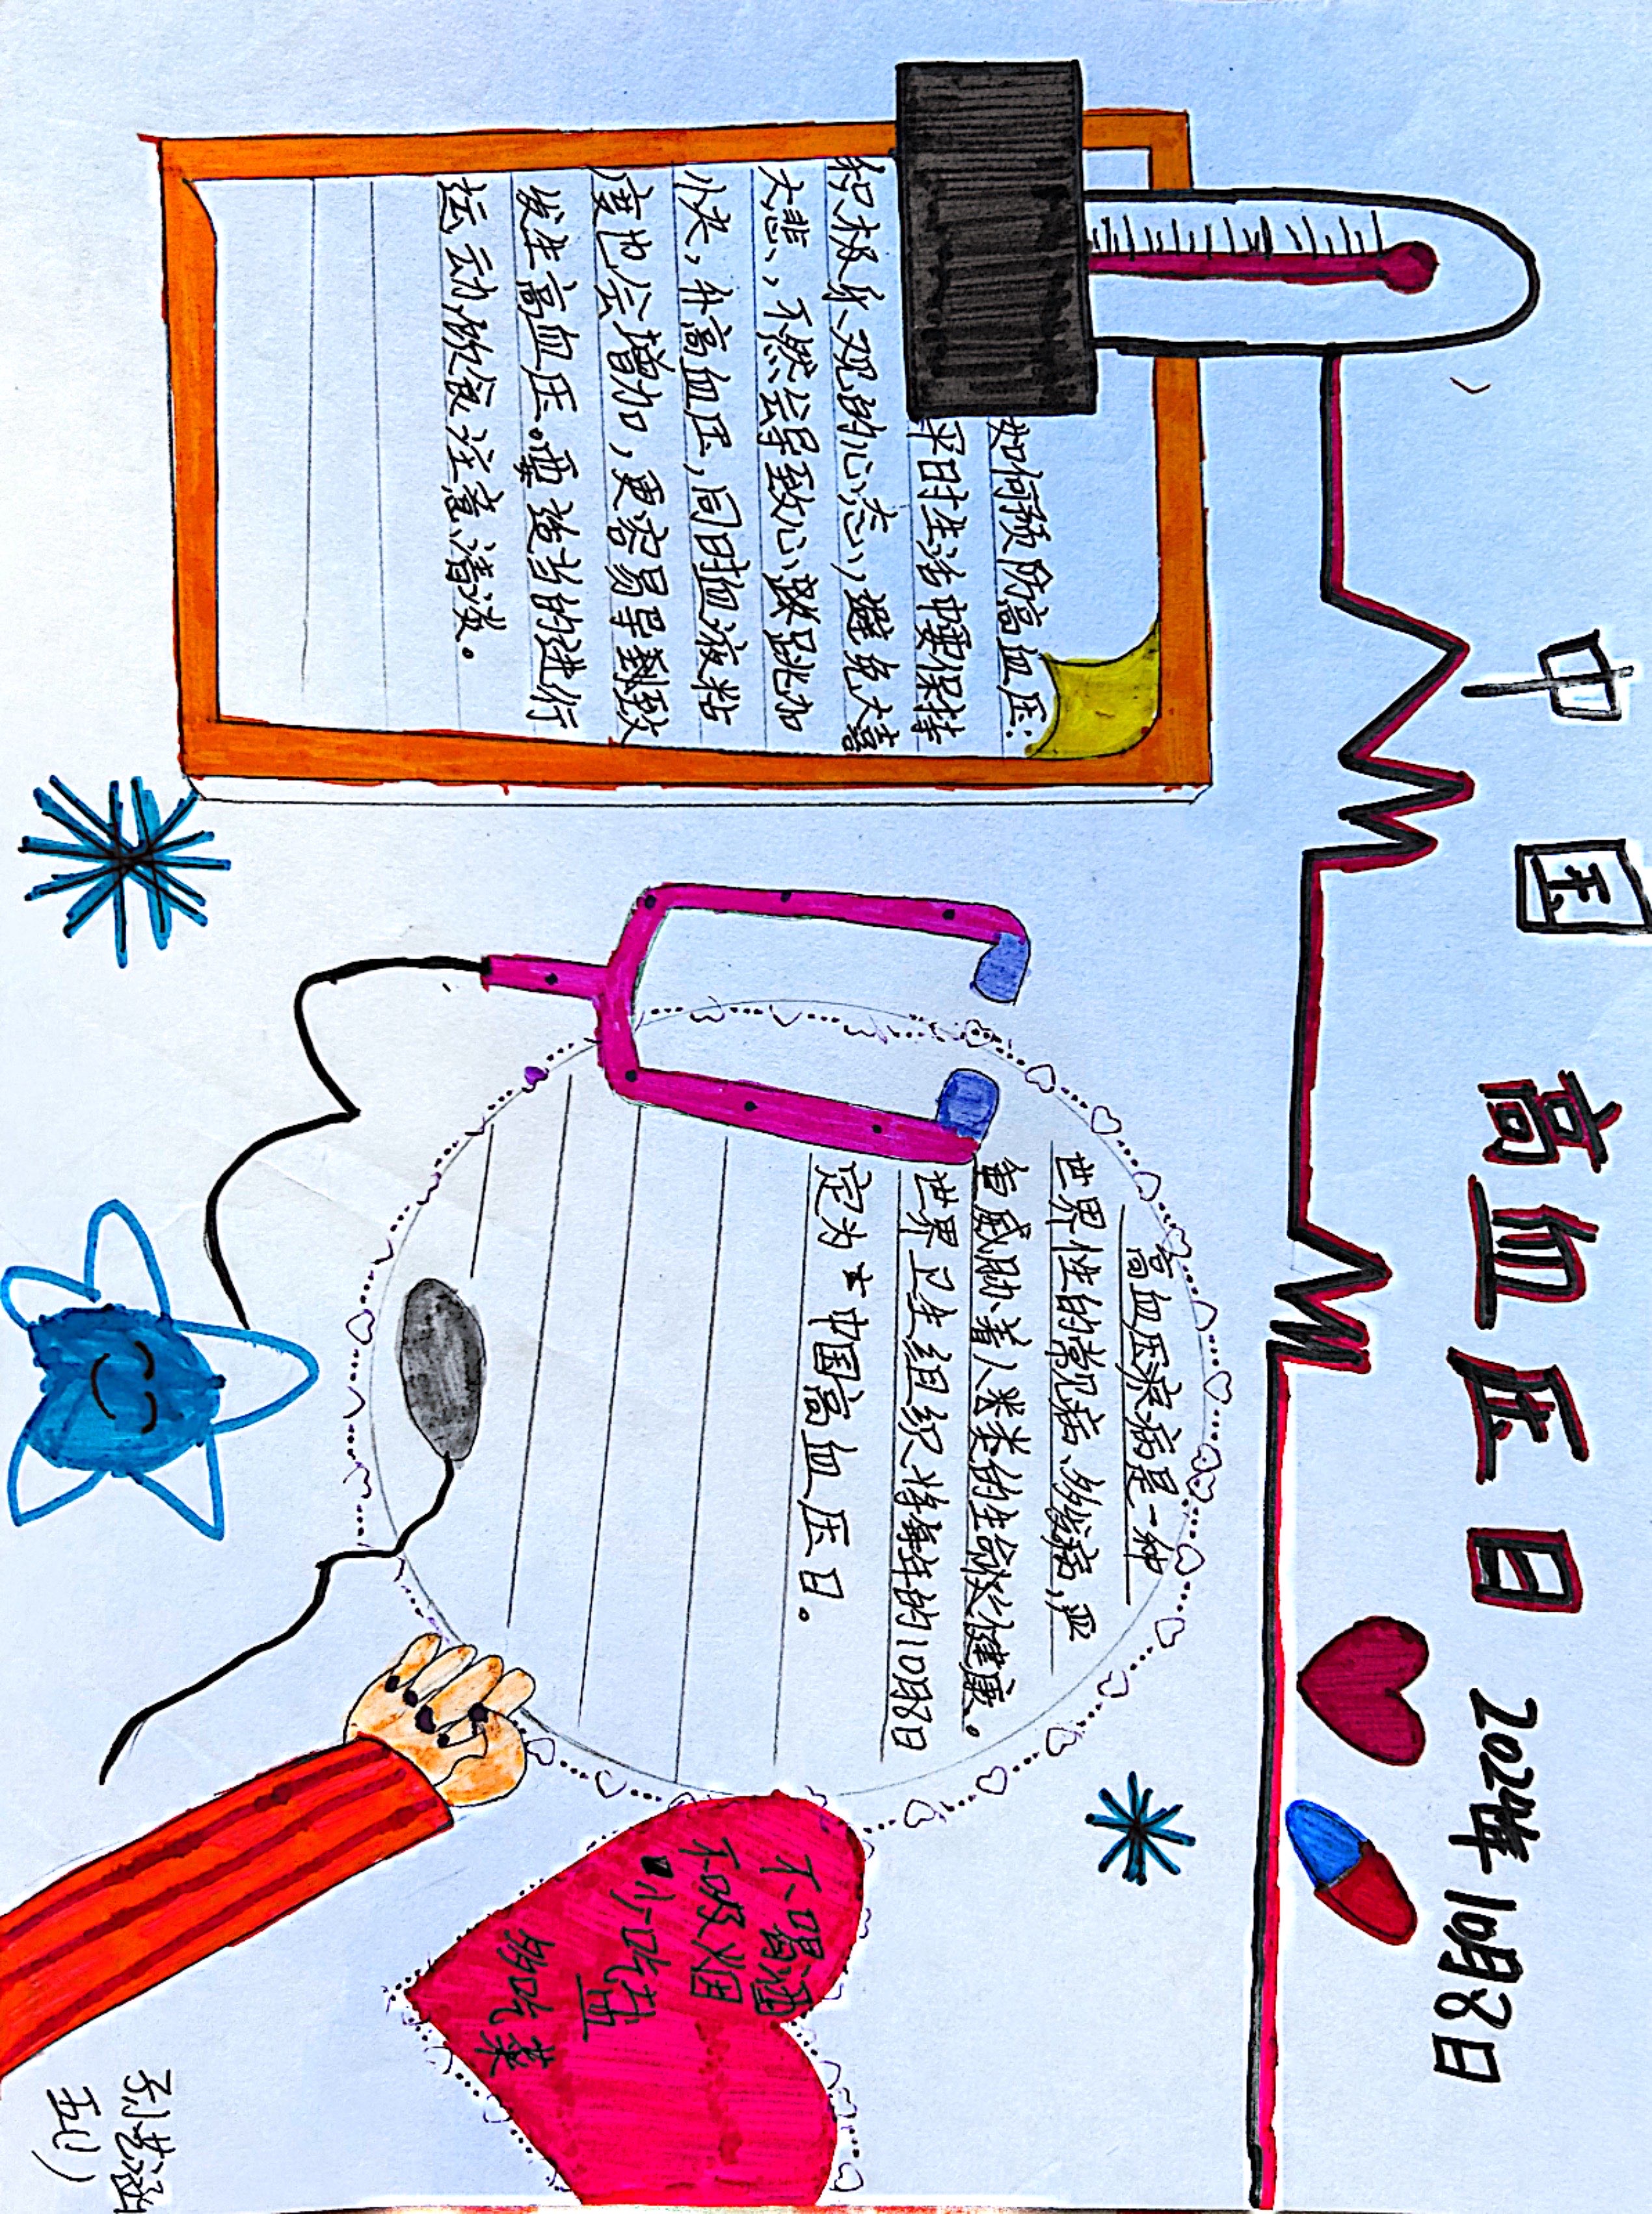 中国高血压日 2024年10月8日
如何预防高血压:
平日时生活中要保持
积极乐观的心态,避免大喜
大悲,不然会导致心跳加
快,升高血压,同时血液粘
度也会增加,更容易导致
发生高血压。要适当的进行
运动饮食注意清淡。
高血压疾病是一种
世界性的常见病、多发病,严
重威胁着人类的生命健康。
世界卫生组织将每年的10月8日
定为中国高血压日。
不喝酒
不吸烟
少吃盐
多吃菜
五(1)